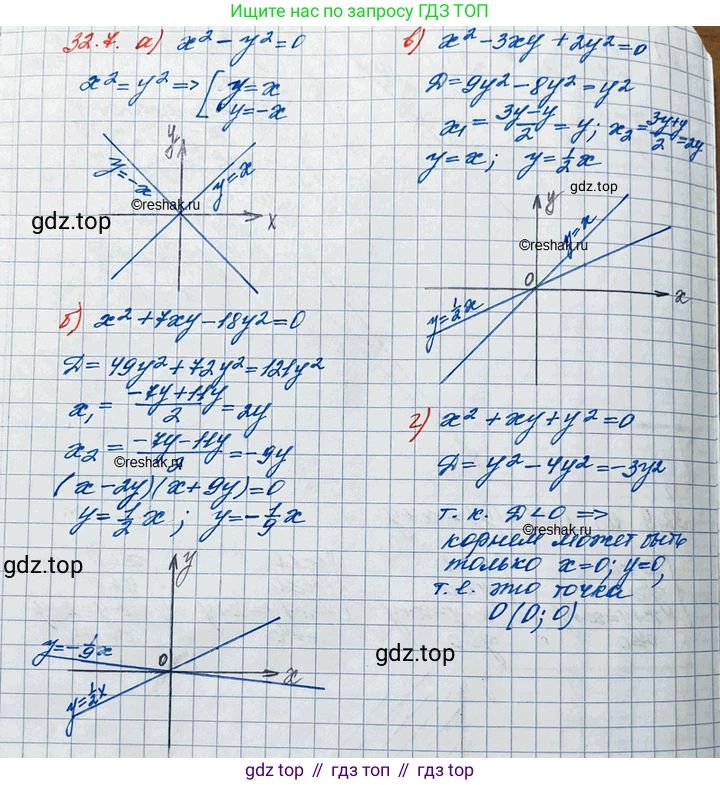 Ищите нас по запросу ГДЗ ТОП
32.7. а) x² − y² = 0
x² = y² => [ y = x
y = −x
y
y = −x
y = x
©reshak.ru
gdz.top
x
б) x² + 7xy − 18y² = 0
D = 49y² + 72y² = 121y²
x₁ = (−7y + 11y)/2 = 2y
x₂ = (−7y − 11y)/2 = −9y
©reshak.ru
(x − 2y)(x + 9y) = 0
y = 1/2 x ; y = −1/9 x
gdz.top
y
y = −1/9 x
0
x
y = 1/2 x
в) x² − 3xy + 2y² = 0
D = 9y² − 8y² = y²
x₁ = (3y − y)/2 = y; x₂ = (3y + y)/2 = 2y
y = x; y = 1/2 x
gdz.top
y
y = x
©reshak.ru
0
x
y = 1/2 x
г) x² + xy + y² = 0
D = y² − 4y² = −3y²
т. к. D < 0 =>
©reshak.ru
корнем может быть
только x = 0; y = 0,
т. е. это точка
O (0; 0)
gdz.top
gdz.top // гдз топ // gdz.top